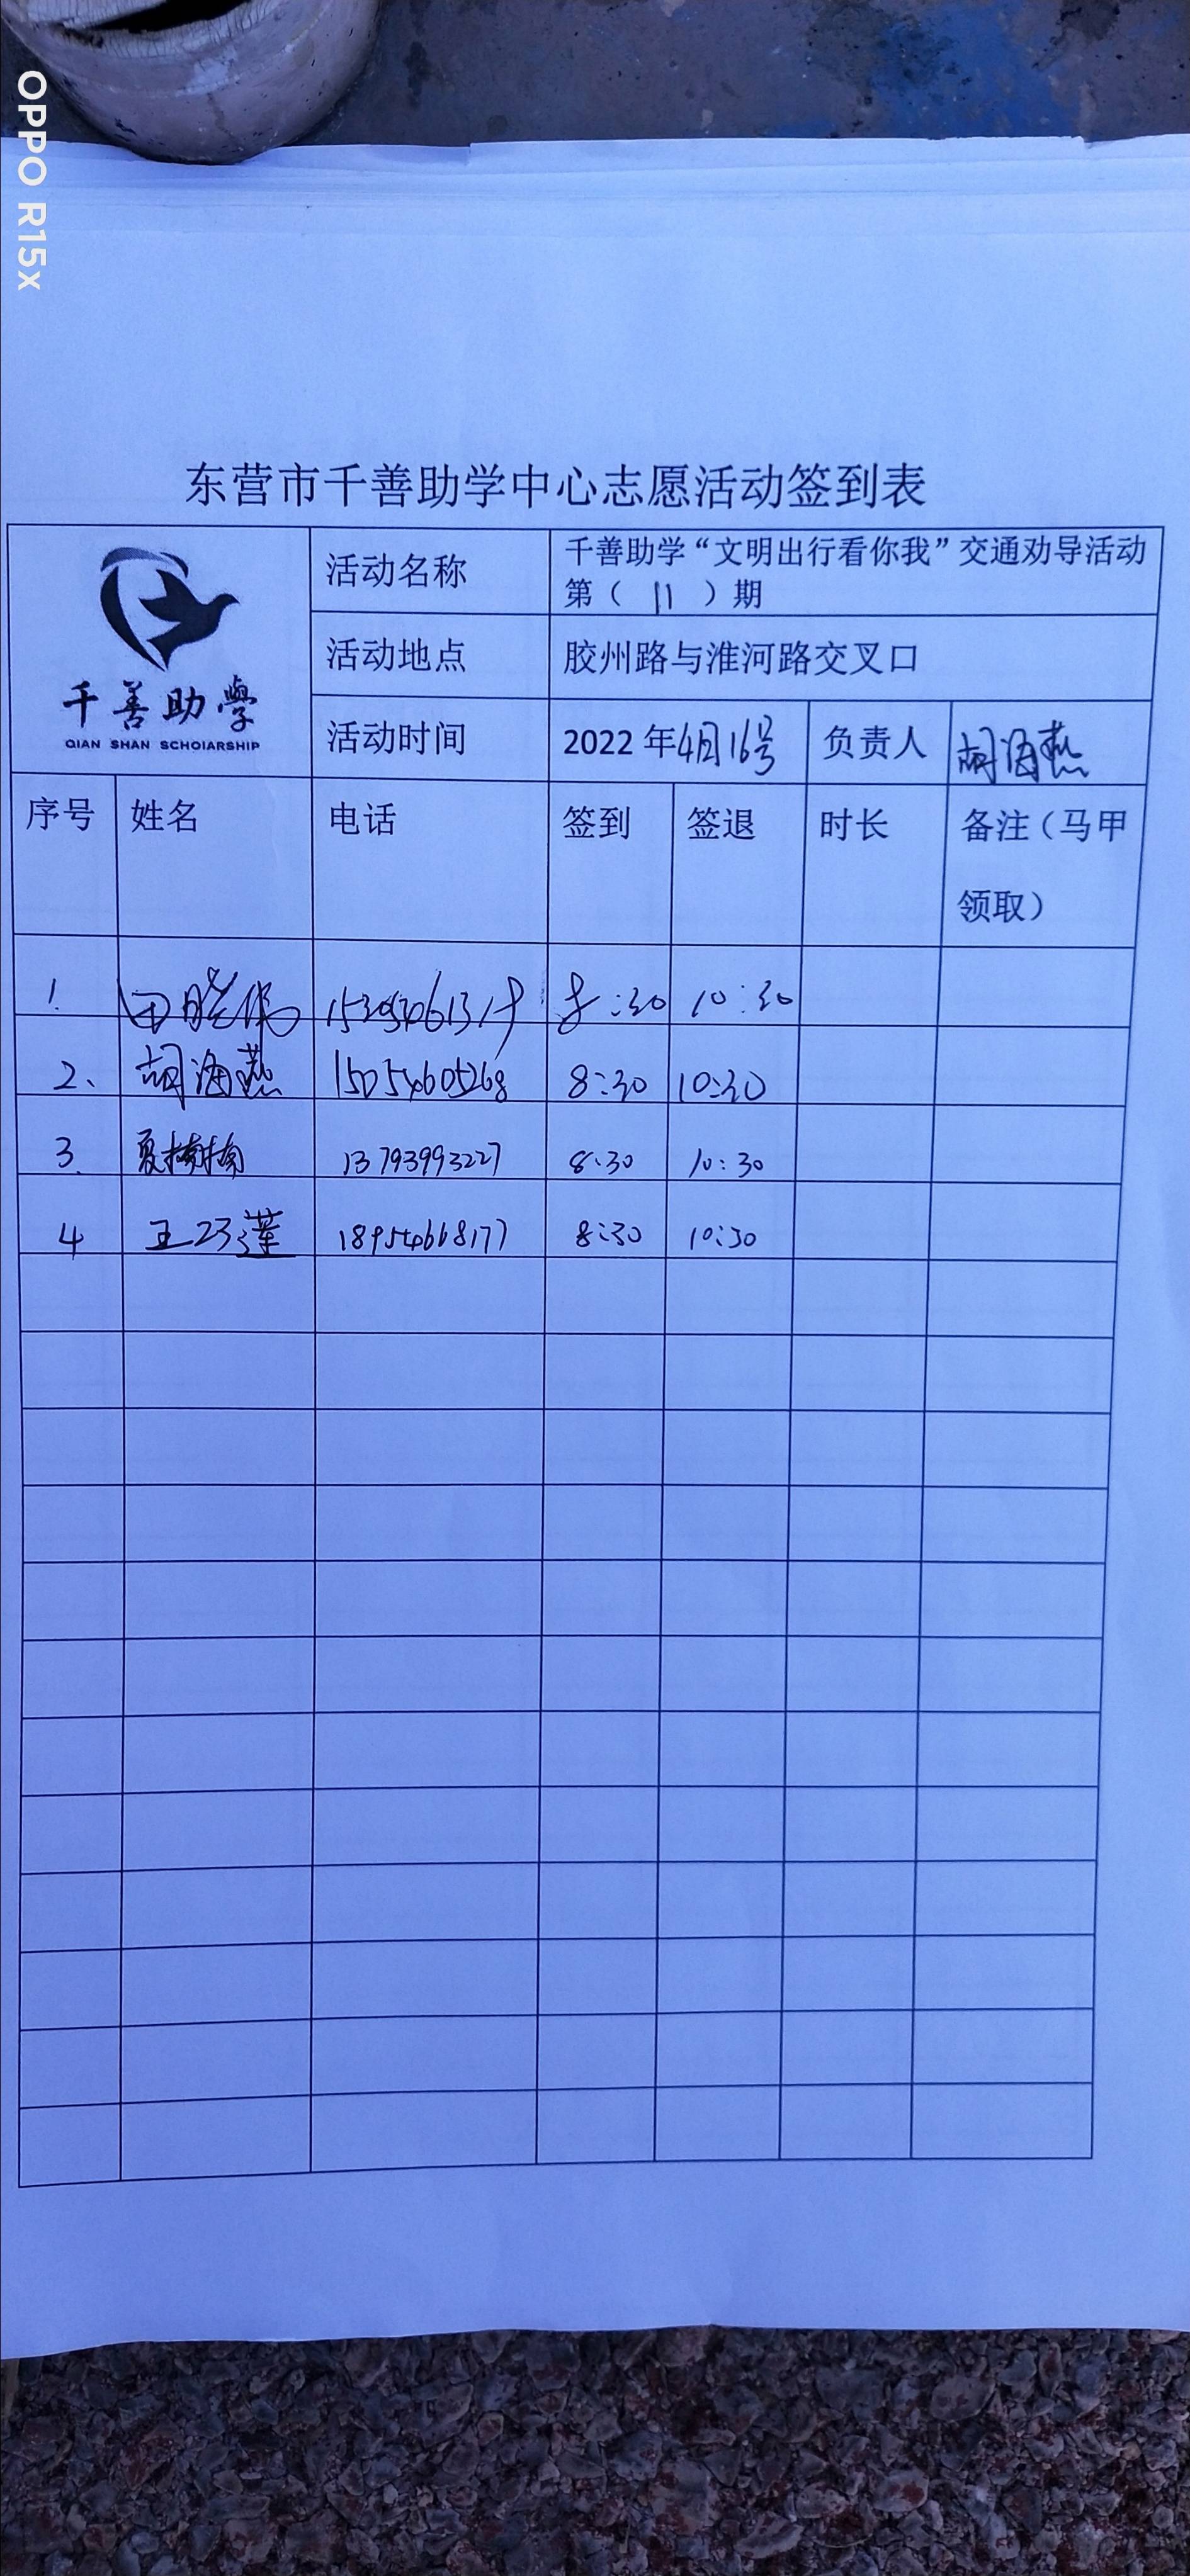 OPPO R15x
东营市千善助学中心志愿活动签到表
千善助學
QIAN SHAN SCHOIARSHIP
活动名称 千善助学“文明出行看你我”交通劝导活动
第（ 11 ）期
活动地点 胶州路与淮河路交叉口
活动时间 2022年4月16号 负责人 胡海燕
序号 姓名 电话 签到 签退 时长 备注（马甲
领取）
1. 田晓 8:30 10:30
2、 胡海燕 15054605268 8:30 10:30
3. 夏楠楠 13793993227 8:30 10:30
4 王 莲 18954668177 8:30 10:30